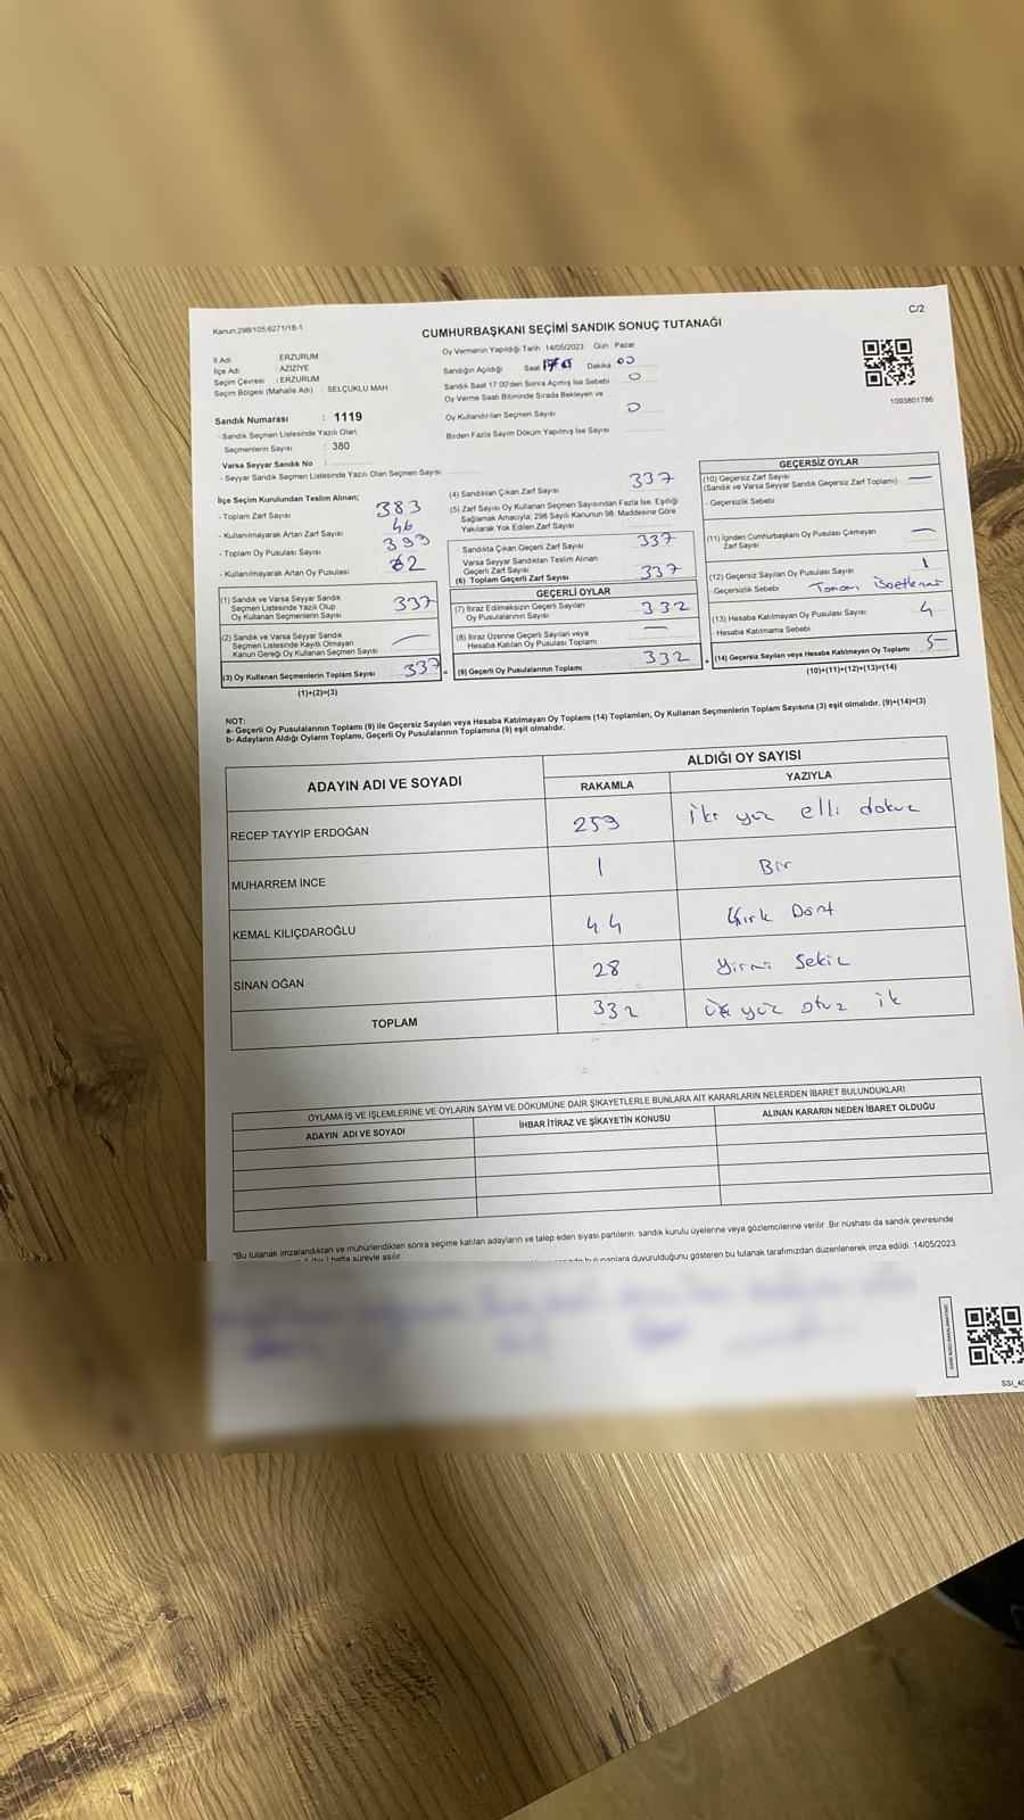 Kanun:298/105,6271/18-1
C/2
CUMHURBAŞKANI SEÇİMİ SANDIK SONUÇ TUTANAĞI
İl Adı : ERZURUM
İlçe Adı : AZİZİYE
Seçim Çevresi : ERZURUM
Seçim Bölgesi (Mahalle Adı) : SELÇUKLU MAH
Oy Vermenin Yapıldığı Tarih 14/05/2023 Gün : Pazar
Sandığın Açıldığı Saat Dakika 00
Sandık Saat 17:00'den Sonra Açılmış İse Sebebi 0
Oy Verme Saati Bitiminde Sırada Bekleyen ve
Oy Kullandırılan Seçmen Sayısı 0
Birden Fazla Sayım Döküm Yapılmış İse Sayısı
1093801786
Sandık Numarası : 1119
- Sandık Seçmen Listesinde Yazılı Olan
Seçmenlerin Sayısı : 380
Varsa Seyyar Sandık No :
- Seyyar Sandık Seçmen Listesinde Yazılı Olan Seçmen Sayısı
İlçe Seçim Kurulundan Teslim Alınan;
- Toplam Zarf Sayısı 383
- Kullanılmayarak Artan Zarf Sayısı 46
- Toplam Oy Pusulası Sayısı 393
- Kullanılmayarak Artan Oy Pusulası 62
(1) Sandık ve Varsa Seyyar Sandık
Seçmen Listesinde Yazılı Olup
Oy Kullanan Seçmenlerin Sayısı 337
(2) Sandık ve Varsa Seyyar Sandık
Seçmen Listesinde Kayıtlı Olmayan
Kanun Gereği Oy Kullanan Seçmen Sayısı —
(3) Oy Kullanan Seçmenlerin Toplam Sayısı 337
(1)+(2)=(3)
(4) Sandıktan Çıkan Zarf Sayısı 337
(5) Zarf Sayısı Oy Kullanan Seçmen Sayısından Fazla İse, Eşitliği
Sağlamak Amacıyla; 298 Sayılı Kanunun 98. Maddesine Göre
Yakılarak Yok Edilen Zarf Sayısı
Sandıkta Çıkan Geçerli Zarf Sayısı 337
Varsa Seyyar Sandıktan Teslim Alınan
Geçerli Zarf Sayısı
(6) Toplam Geçerli Zarf Sayısı 337
GEÇERLİ OYLAR
(7) İtiraz Edilmeksizin Geçerli Sayılan
Oy Pusulalarının Sayısı 332
(8) İtiraz Üzerine Geçerli Sayılan veya
Hesaba Katılan Oy Pusulası Toplamı —
(9) Geçerli Oy Pusulalarının Toplamı 332
GEÇERSİZ OYLAR
(10) Geçersiz Zarf Sayısı
(Sandık ve Varsa Seyyar Sandık Geçersiz Zarf Toplamı) —
- Geçersizlik Sebebi
(11) İçinden Cumhurbaşkanı Oy Pusulası Çıkmayan
Zarf Sayısı —
(12) Geçersiz Sayılan Oy Pusulası Sayısı 1
Geçersizlik Sebebi
(13) Hesaba Katılmayan Oy Pusulası Sayısı 4
Hesaba Katılmama Sebebi
(14) Geçersiz Sayılan veya Hesaba Katılmayan Oy Toplamı 5
(10)+(11)+(12)+(13)=(14)
NOT:
a- Geçerli Oy Pusulalarının Toplamı (9) ile Geçersiz Sayılan veya Hesaba Katılmayan Oy Toplamı (14) Toplamları, Oy Kullanan Seçmenlerin Toplam Sayısına (3) eşit olmalıdır. (9)+(14)=(3)
b- Adayların Aldığı Oyların Toplamı, Geçerli Oy Pusulalarının Toplamına (9) eşit olmalıdır.
ADAYIN ADI VE SOYADI
ALDIĞI OY SAYISI
RAKAMLA YAZIYLA
RECEP TAYYİP ERDOĞAN 259 iki yüz elli dokuz
MUHARREM İNCE 1 Bir
KEMAL KILIÇDAROĞLU 44 Kırk Dört
SİNAN OĞAN 28 Yirmi Sekiz
TOPLAM 332 üç yüz otuz ik
OYLAMA İŞ VE İŞLEMLERİNE VE OYLARIN SAYIM VE DÖKÜMÜNE DAİR ŞİKAYETLERLE BUNLARA AİT KARARLARIN NELERDEN İBARET BULUNDUKLARI
ADAYIN ADI VE SOYADI İHBAR İTİRAZ VE ŞİKAYETİN KONUSU ALINAN KARARIN NEDEN İBARET OLDUĞU
*Bu tutanak imzalandıktan ve mühürlendikten sonra seçime katılan adayların ve talep eden siyasi partilerin, sandık kurulu üyelerine veya gözlemcilerine verilir. Bir nüshası da sandık çevresinde
hafta süreyle asılır. duyurulduğunu gösteren bu tutanak tarafımızdan düzenlenerek imza edildi. 14/05/2023